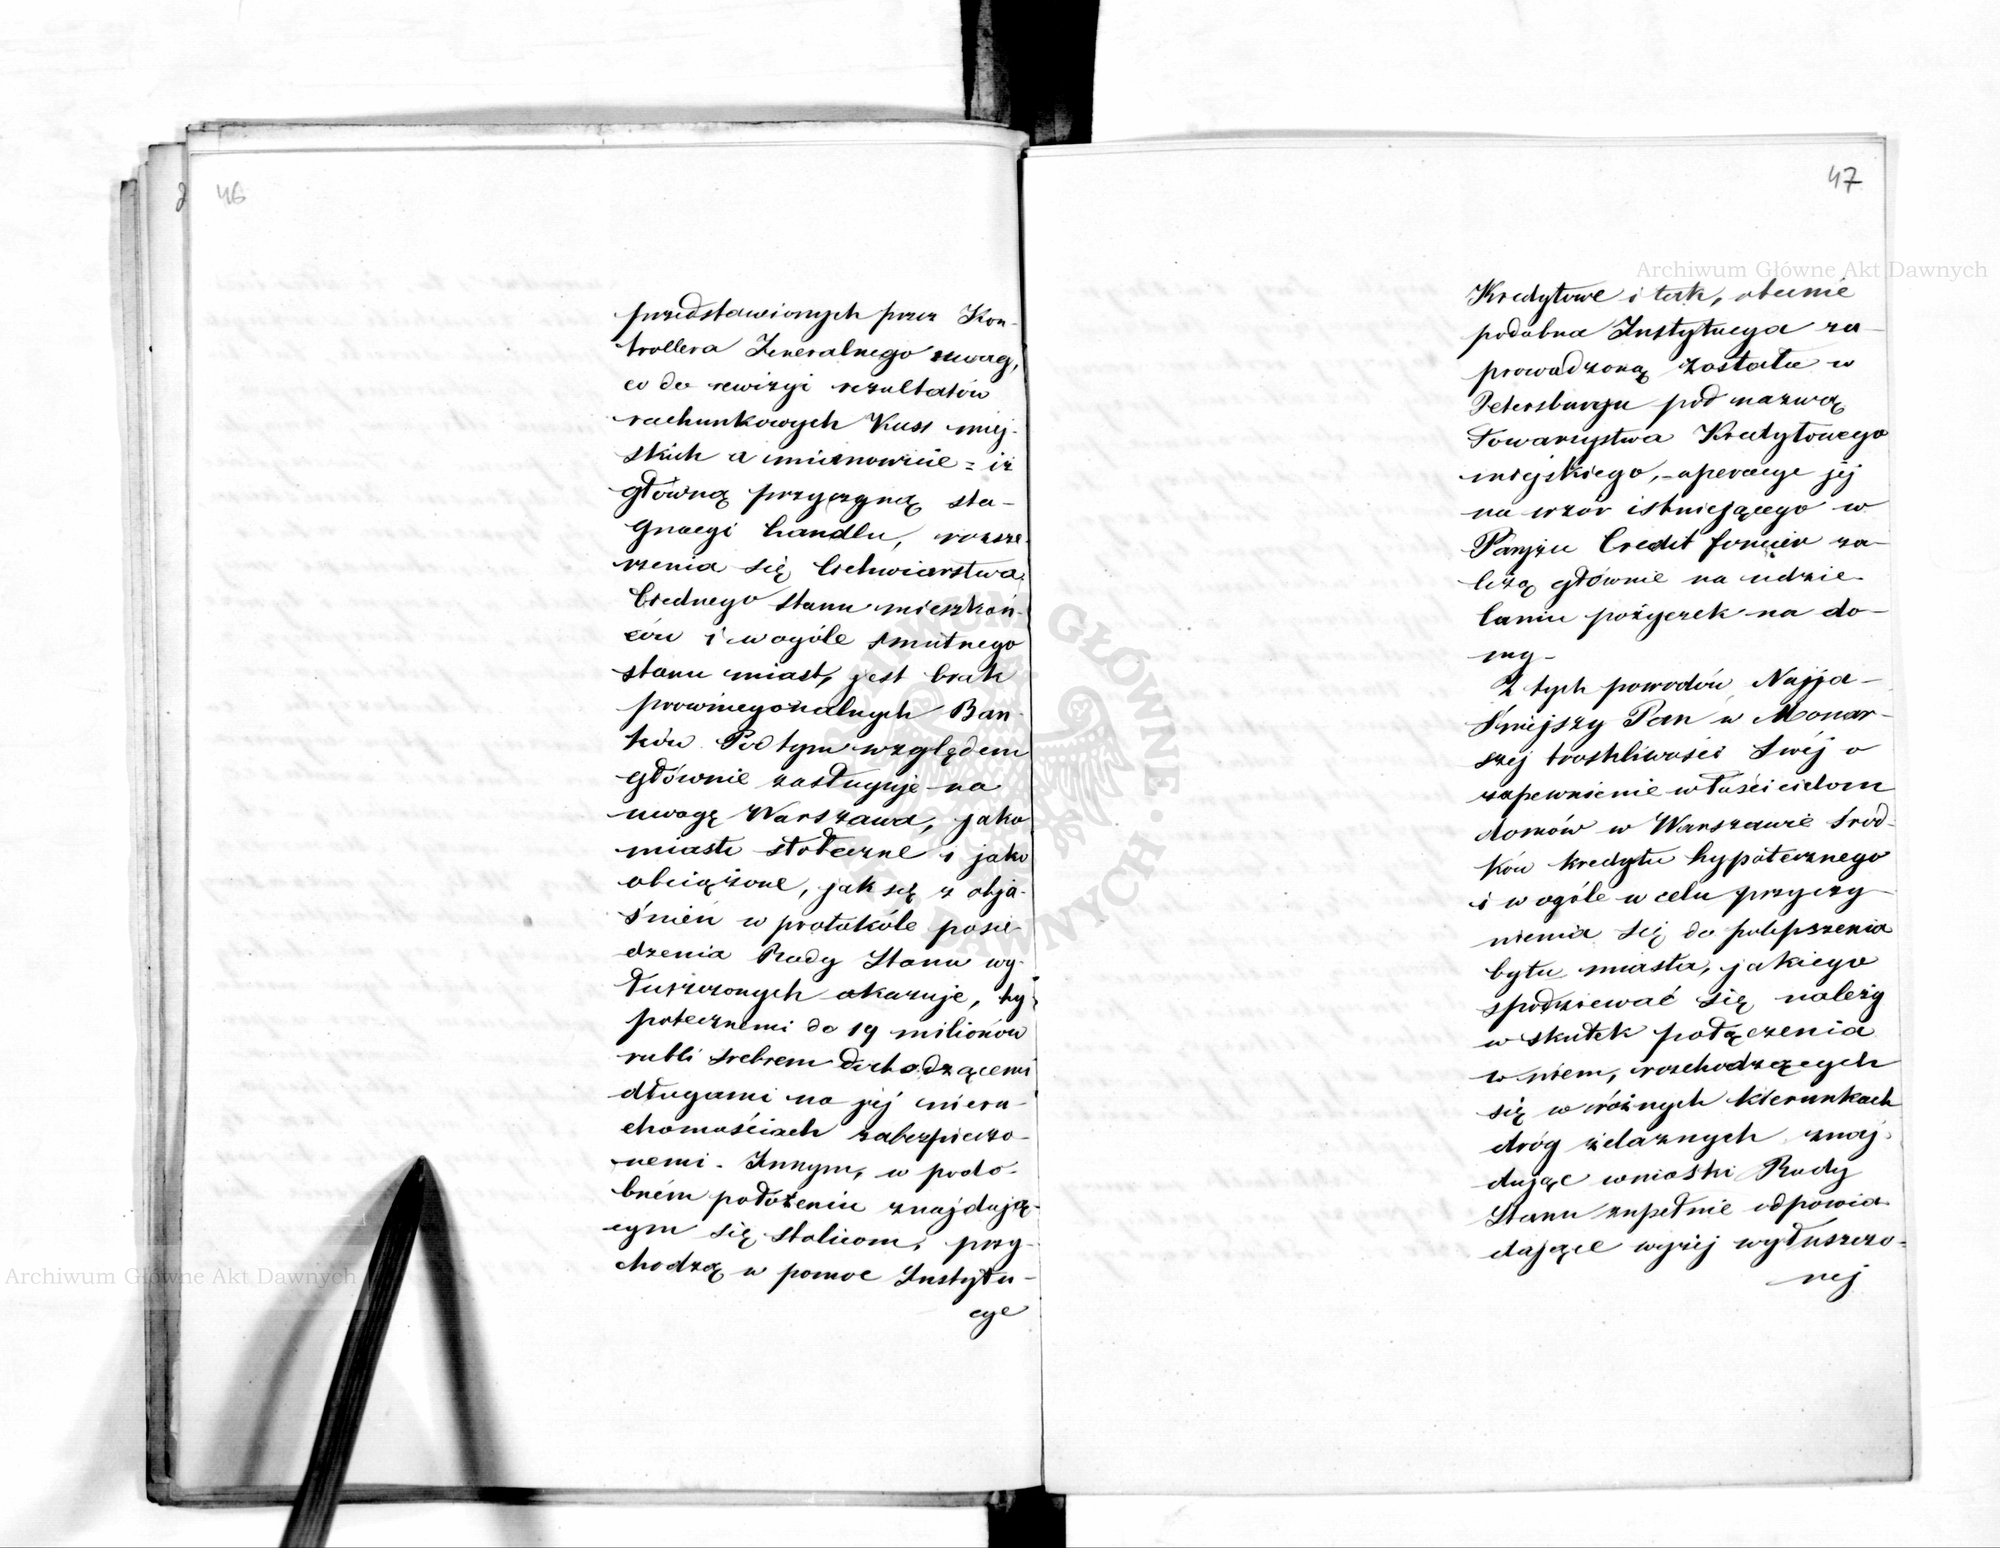 46
przedstawionych przez Kon-
trollera Jeneralnego uwag,
co do rewizyi rezultatów
rachunkowych Kass miej-
skich a mianowicie = iż
główną przyczyną sta-
gnacyi handlu, rozsze-
rzenia się lichwiarstwa,
biednego stanu mieszkań-
ców i w ogóle smutnego
stanu miast, jest brak
prowincyonalnych Ban-
ków. Pod tym względem
głównie zasługuje na
uwagę Warszawa, jako
miasto stołeczne i jako
obciążone, jak się z obja-
śnień w protokóle posie-
dzenia Rady Stanu wy-
łuszczonych okazuje, hy-
potecznemi do 19 milionów
rubli srebrem dochodzącemi
długami na jej nieru-
chomościach zabezpieczo-
nemi. Innym, w podo-
bném położeniu znajdują-
cym się stolicom, przy-
chodzą w pomoc Instytu-
cye
47
Kredytowe i tak, obecnie
podobna Instytucya za-
prowadzoną została w
Petersburgu pod nazwą
Towarzystwa Kredytowego
miejskiego, - operacye jej
na wzór istniejącego w
Paryżu Credit foncier za-
leżą głównie na udzie-
laniu pożyczek na do-
my -
Z tych powodów Najja-
śniejszy Pan w Monar-
szej troskliwości Swéj o
zapewnienie właścicielom
domów w Warszawie środ-
ków kredytu hypotecznego
i w ogóle w celu przyczy-
nienia się do polepszenia
bytu miasta, jakiego
spodziewać się należy
w skutek połączenia
w niem, rozchodzących
się w różnych kierunkach
dróg żelaznych znaj-
dując wnioski Rady
Stanu zupełnie odpowia-
dające wyżej wyłuszczo-
nej
Archiwum Główne Akt Dawnych
Archiwum Główne Akt Dawnych